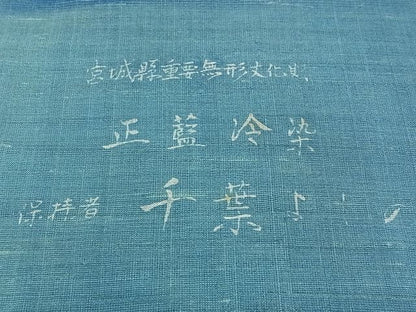 宮城縣重要無形文化財
正藍冷染
保持者 千葉よしの